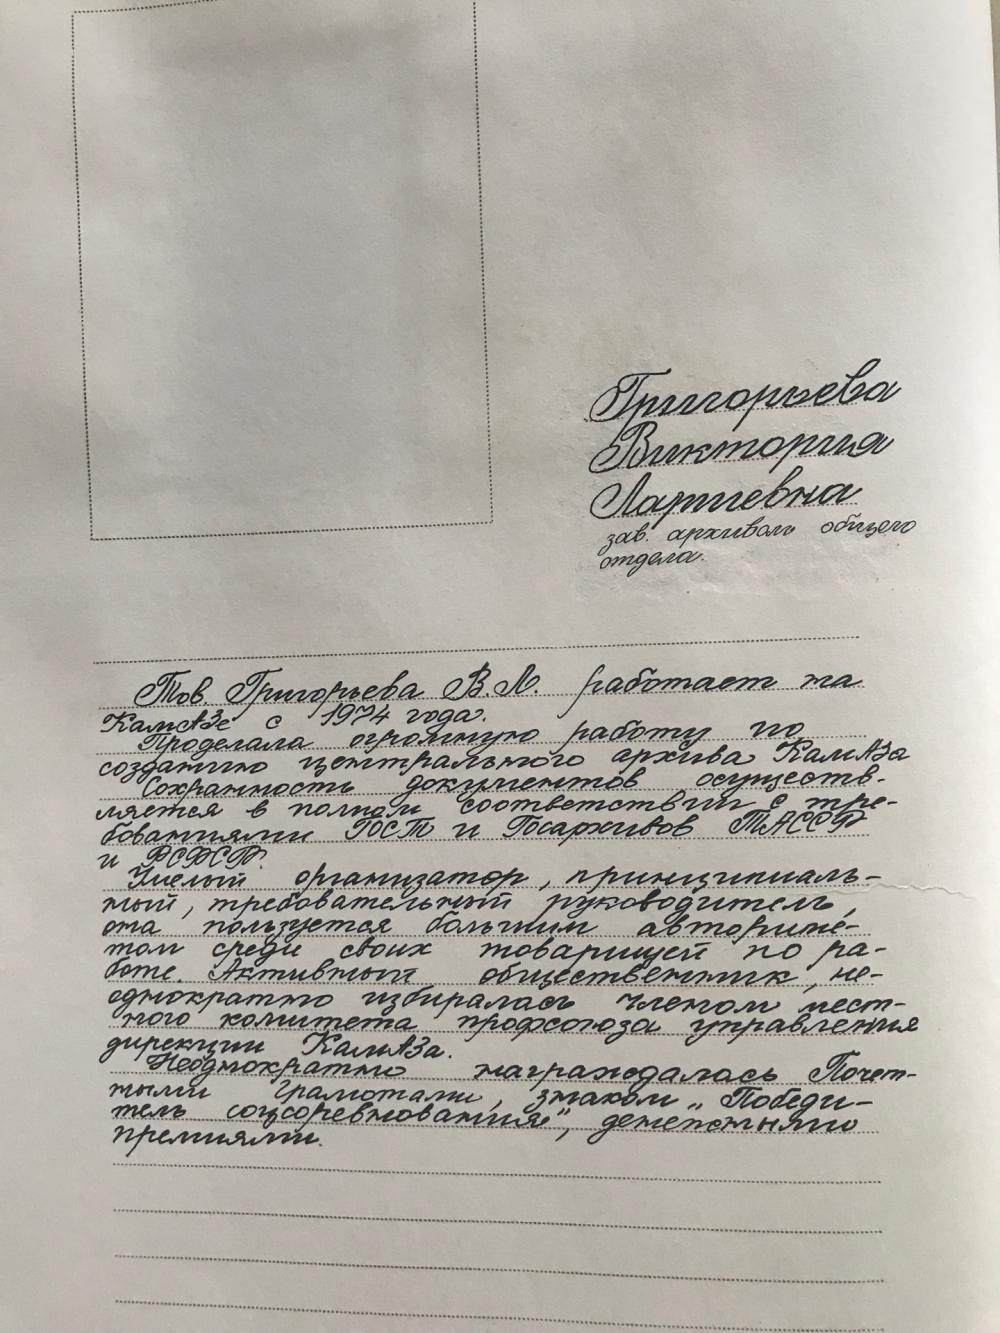 Григорьева
Виктория
Ларшевна
зав. архивом общего
отдела.
Тов. Григорьева В.Л. работает на
КамАЗе с 1974 года.
Проделала огромную работу по
созданию центрального архива КамАЗа
Сохранность документов осуществ-
ляется в полном соответствии с тре-
бованиями ГОСТ и Госархивов ТАССР
и РСФСР.
Умелый организатор, принципиаль-
ный, требовательный руководитель,
она пользуется большим авторите-
том среди своих товарищей по ра-
боте. Активный общественник, не-
однократно избиралась членом мест-
ного комитета профсоюза управления
дирекции КамАЗа.
Неоднократно награждалась Почет-
ными грамотами, знаком „Победи-
тель соцсоревнования", денежными
премиями.